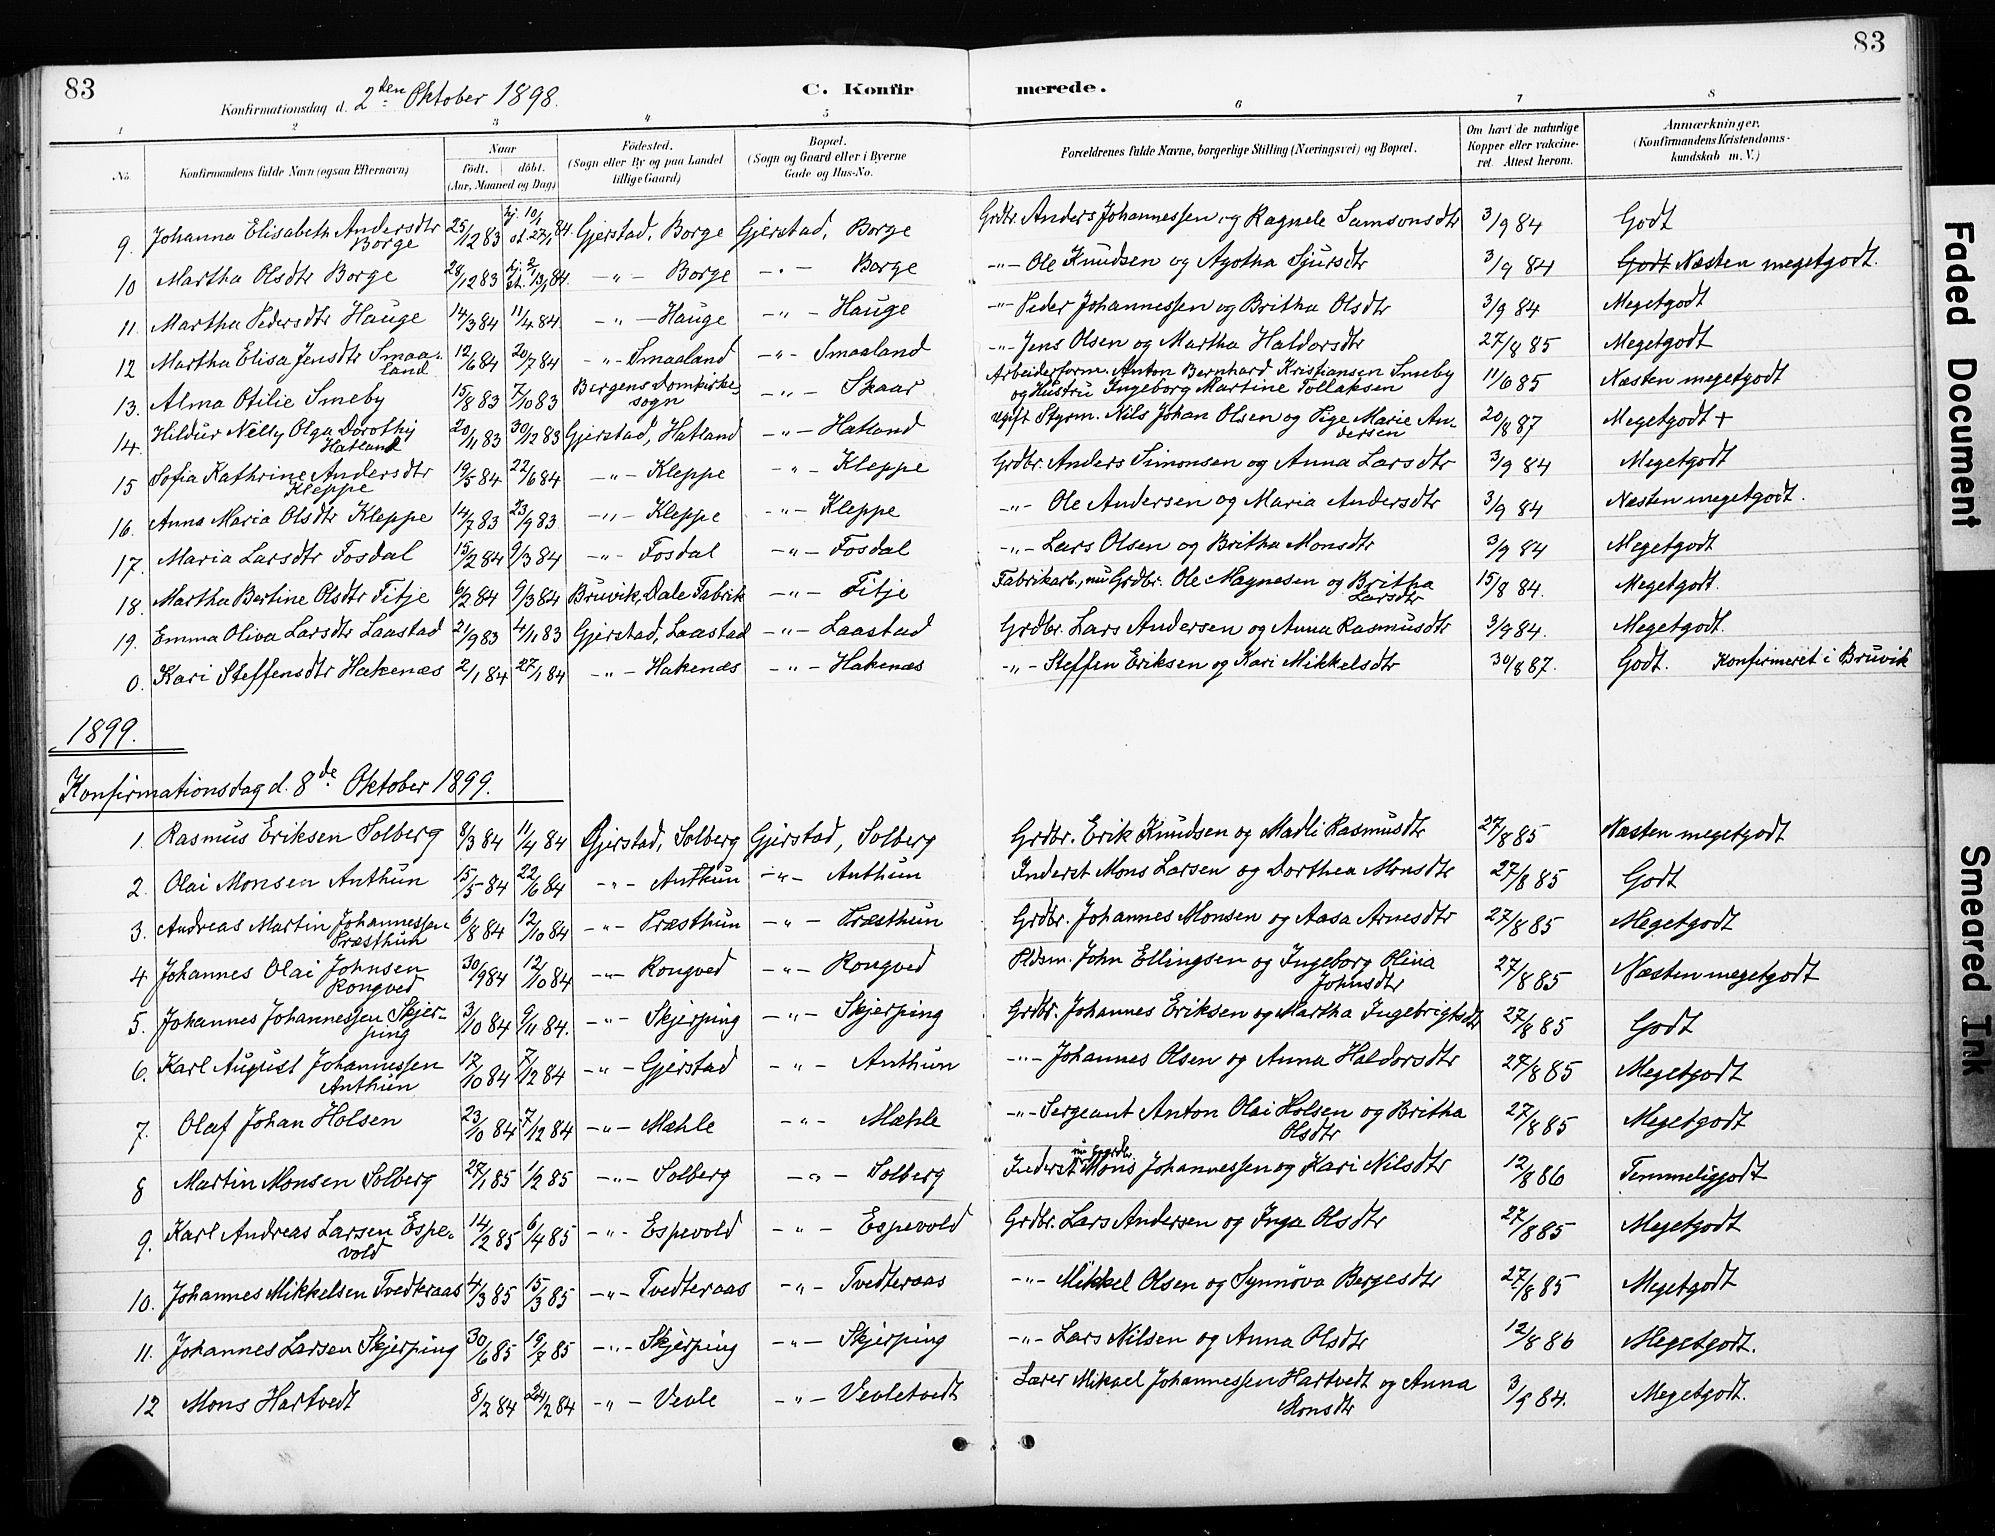 83
83
Konfirmationsdag d. 2den Oktober 1898.
C. Konfir
merede.
1 2 3 4 5 6 7 8
No.
Konfirmandens fulde Navn (ogsaa Efternavn)
Naar
födt. döbt.
(Aar, Maaned og Dag)
Födested.
(Sogn eller By og paa Landet
tillige Gaard)
Bopæl.
(Sogn og Gaard eller i Byerne
Gade og Hus-No.
Forældrenes fulde Navne, borgerlige Stilling (Næringsvei) og Bopæl.
Om havt de naturlige
Kopper eller vakcine-
ret. Attest herom.
Anmærkninger,
(Konfirmandens Kristendoms-
kundskab m. V.)
9. Johanna Elisabeth Andersdtr Borge 25/12 83 hj. 10/1 st. 27/1 84. Gjerstad, Borge Gjerstad, Borge Grdbr. Anders Johannessen og Ragnele Samsonsdtr 3/9 84 Godt
10 Martha Olsdtr Borge 28/12 83 hj. 2/1 st. 13/1 84. -"- Borge -"- Borge -"- Ole Knudsen og Agotha Sjursdtr 3/9 84 Godt Næsten megetgodt.
11. Martha Pedersdtr Hauge 14/3 84 11/4 84. -"- Hauge -"- Hauge -"- Peder Johannessen og Britha Olsdtr 3/9 84 Megetgodt
12 Martha Elisa Jensdtr Smaaland 12/6 84 20/7 84 -"- Smaaland -"- Smaaland -"- Jens Olsen og Martha Haldorsdtr 27/8 85 Megetgodt
13. Alma Otilie Smeby 15/8 83 7/10 83 Bergens Domkirkesogn -"- Skaar Arbeiderform. Anton Bernhard Kristiansen Smeby og Hustru Ingeborg Martine Tollaksen 11/6 85 Næsten megetgodt
14. Hildur Nelly Olga Dorothy Hatland 20/11 83 30/12 83 Gjerstad, Hatland -"- Hatland Ugift Styrm. Nils Johan Olsen og Pige Marie Andersen 20/8 87 Megetgodt +
15 Sofia Kathrine Andersdtr Kleppe 19/5 84 22/6 84 -"- Kleppe -"- Kleppe Grdbr. Anders Simonsen og Anna Larsdtr 3/9 84 Megetgodt
16. Anna Maria Olsdtr Kleppe 14/7 83 23/9 83 -"- Kleppe -"- Kleppe -"- Ole Andersen og Maria Andersdtr 3/9 84 Næsten megetgodt.
17. Maria Larsdtr Fosdal 15/2 84 9/3 84 -"- Fosdal -"- Fosdal -"- Lars Olsen og Britha Monsdtr 3/9 84 Megetgodt
18. Martha Bertine Olsdtr Fitje 6/2 84 9/3 84 Bruvik, Dale Fabrik -"- Fitje Fabrikarb., nu Grdbr. Ole Magnesen og Britha Larsdtr 15/8 84. Megetgodt.
19. Emma Oliva Larsdtr Laastad 21/9 83 4/11 83 Gjerstad, Laastad -"- Laastad Grdbr. Lars Andersen og Anna Rasmusdtr 3/9 84. Megetgodt.
0. Kari Steffensdtr Hakenæs 2/1 84 27/1 84 -"- Hakenæs -"- Hakenæs -"- Steffen Eriksen og Kari Mikkelsdtr 30/8 87. Godt. Konfirmeret i Bruvik
1899.
Konfirmationsdag d. 8de Oktober 1899.
1. Rasmus Eriksen Solberg 8/3 84 11/4 84 Gjerstad, Solberg Gjerstad, Solberg Grdbr. Erik Knudsen og Madli Rasmusdtr 27/8 85 Næsten megetgodt
2. Olai Monsen Anthun 15/5 84 22/6 84 -"- Anthun -"- Anthun Inderst Mons Larsen og Dorthea Monsdtr 27/8 85 Godt
3. Andreas Martin Johannessen Præsthun 6/8 84 12/10 84 -"- Præsthun -"- Præsthun Grdbr. Johannes Monsen og Aasa Arnesdtr 27/8 85 Megetgodt
4 Johannes Olai Johnsen Rongved 30/9 84 12/10 84 -"- Rongved -"- Rongved Pldsm. John Ellingsen og Ingeborg Olina Johnsdtr 27/8 85 Næsten megetgodt
5. Johannes Johannessen Skjerping 3/10 84 9/11 84. -"- Skjerping -"- Skjerping Grdbr. Johannes Eriksen og Martha Ingebrigtsdtr 27/8 85 Godt
6. Karl August Johannessen Anthun 17/10 84 7/12 84 -"- Gjerstad -"- Anthun -"- Johannes Olsen og Anna Haldorsdtr 27/8 85 Megetgodt
7. Olaf Johan Holsen 23/10 84 7/12 84 -"- Mæhle -"- Mæhle -"- Sergeant Anton Olai Holsen og Britha Olsdtr 27/8 85 Megetgodt
8 Martin Monsen Solberg 27/1 85 1/2 85 -"- Solberg -"- Solberg Inderst Mons Johannessen og Kari Nilsdtr 12/8 86 Temmeliggodt
9. Karl Andreas Larsen Espevold 14/2 85 6/4 85 -"- Espevold -"- Espevold Grdbr. Lars Andersen og Inga Olsdtr 27/8 85 Megetgodt
10. Johannes Mikkelsen Tvedteraas 4/3 85 15/3 85 -"- Tvedteraas -"- Tvedteraas -"- Mikkel Olsen og Synnöva Bergesdtr 27/8 85 Megetgodt
11. Johannes Larsen Skjerping 30/6 85 19/7 85 -"- Skjerping -"- Skjerping -"- Lars Nilsen og Anna Olsdtr 12/8 86 Megetgodt.
12 Mons Hartvedt 8/2 84 24/2 84 -"- Vevle -"- Vevletvedt Lærer Mikael Johannessen Hartvedt og Anna Monsdtr 3/9 84. Megetgodt.
Faded Document
Smeared Ink